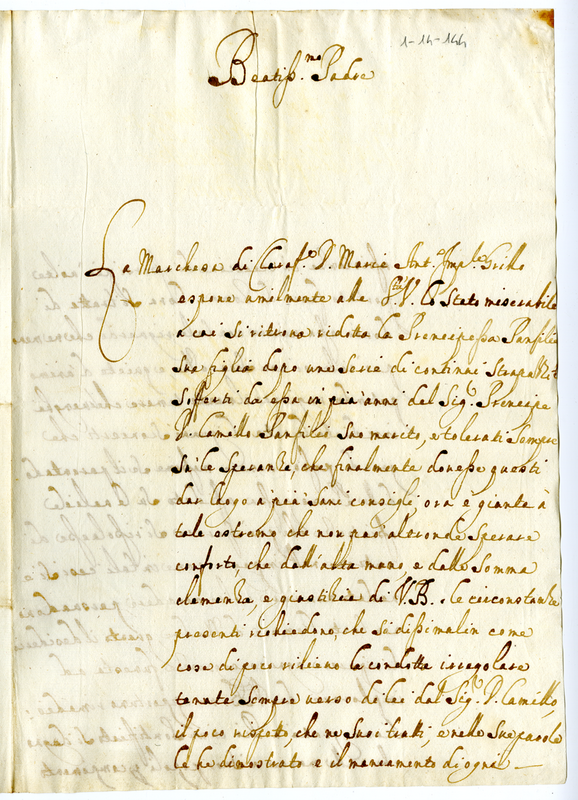 1-14-144
Beatiss.mo Padre
La Marchesa di Claraf.te D. Maria Ant.a Imp.le Grillo
espone umilmente alla S.tà V. lo Stato miserabile
a cui si ritrova ridotta la Prencipessa Panfilia
sua figlia dopo una Serie di continui Strapazzi
Sofferti da essa in più anni dal Sig.r Prencipe
D. Camillo Panfilio Suo marito, e tolerati Sempre
Sù le Speranze, che finalmente dovesse questi
dar luogo a più Sani consigli, ora è giunta à
tale estremo che non può altronde Sperare
conforto, che dall'alta mano, e dalla Somma
clemenza, e giustizia di V.B. le circonstanze
presenti richiedono, che si dissimulin come
cosa di poco rilievo la condotta irregolare
tenuta Sempre verso di lei dal Sig.r D. Camillo,
il poco rispetto, che ne Suoi tratti, e nelle Sue parole
le ha dimostrato e il mancamento di ogni